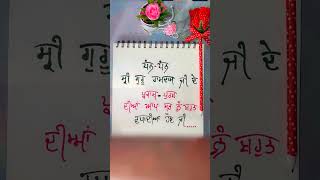 ਧੰਨ-ਧੰਨ
ਸ੍ਰੀ ਗੁਰੂ ਰਾਮਦਾਸ ਜੀ ਦੇ
ਪ੍ਰਕਾਸ਼ - ਪੁਰਬ
ਦੀਆਂ ਆਪ ਸਭ ਨੂੰ ਬਹੁਤ
ਵਧਾਈਆਂ ਹੋਣ ਜੀ
ਜੀ ਦੇ
ਦੀਆਂ
ਨੂੰ ਬਹੁਤ